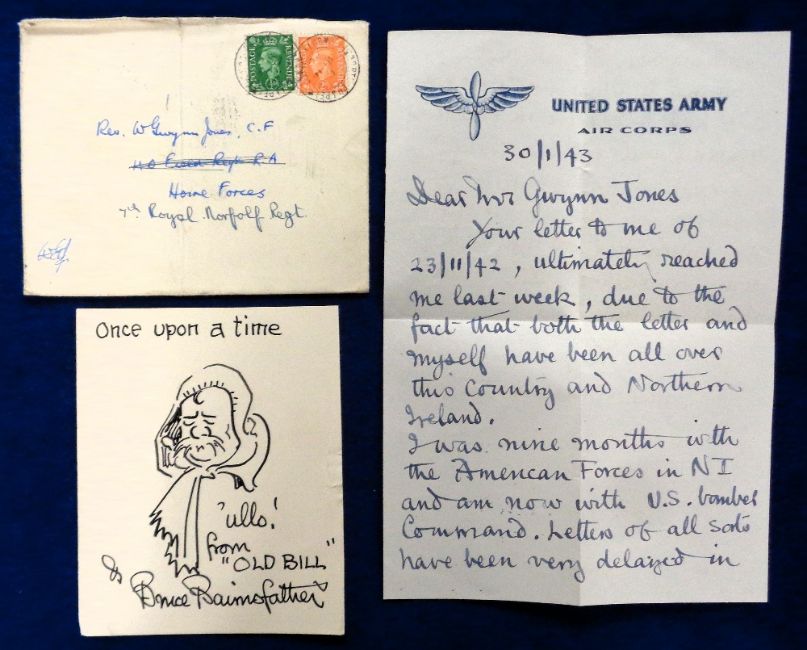 POSTAGE REVENUE
Rev. W Gwynn Jones, C.F
Home Forces
7th Royal Norfolf Regt.
Once upon a time
'ullo!
from
"OLD BILL"
& Bruce Bairnsfather
UNITED STATES ARMY
AIR CORPS
30/1/43
Dear Mr Gwynn Jones
Your letter to me of
23/11/42, ultimately reached
me last week, due to the
fact that both the letter and
myself have been all over
this Country and Northern
Ireland.
I was nine months with
the American Forces in NI
and am now with U.S. bomber
Command. Letters of all sorts
have been very delayed in